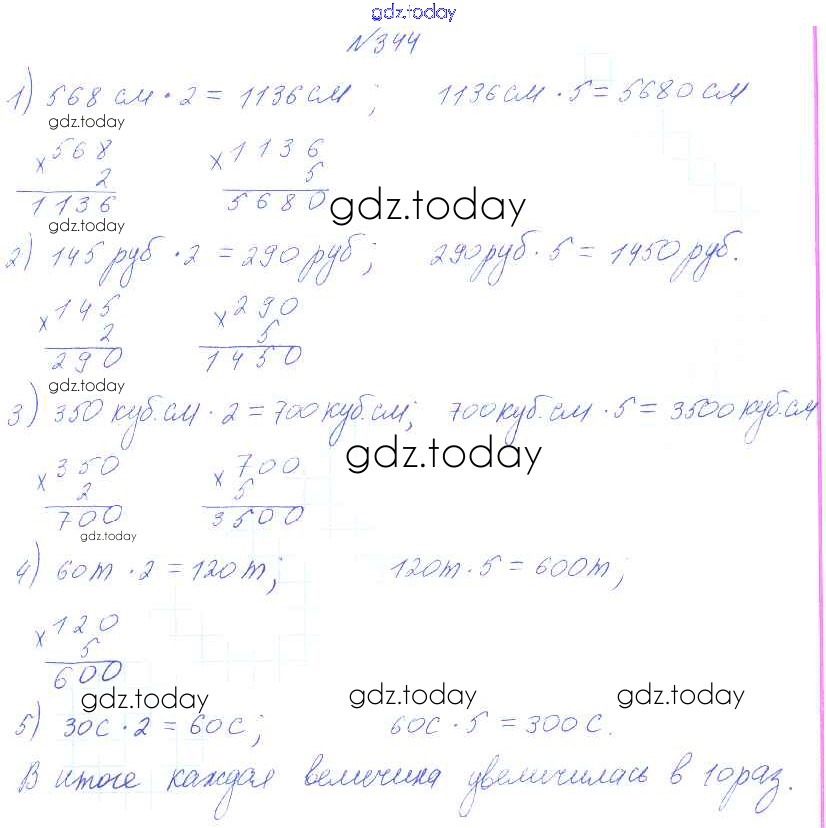 gdz.today
№344
1) 568 см · 2 = 1136 см ; 1136 см · 5 = 5680 см
gdz.today
×568 ×1136
2 5
1136 5680 gdz.today
gdz.today
2) 145 руб · 2 = 290 руб ; 290 руб · 5 = 1450 руб.
×145 ×290
2 5
290 1450
gdz.today
3) 350 куб.см · 2 = 700 куб.см; 700 куб.см · 5 = 3500 куб.см
gdz.today
×350 ×700
2 5
700 3500
gdz.today
4) 60т · 2 = 120т; 120т · 5 = 600т;
×120
5
600
gdz.today gdz.today gdz.today
5) 30с · 2 = 60с; 60с · 5 = 300с.
В итоге каждая величина увеличилась в 10 раз.